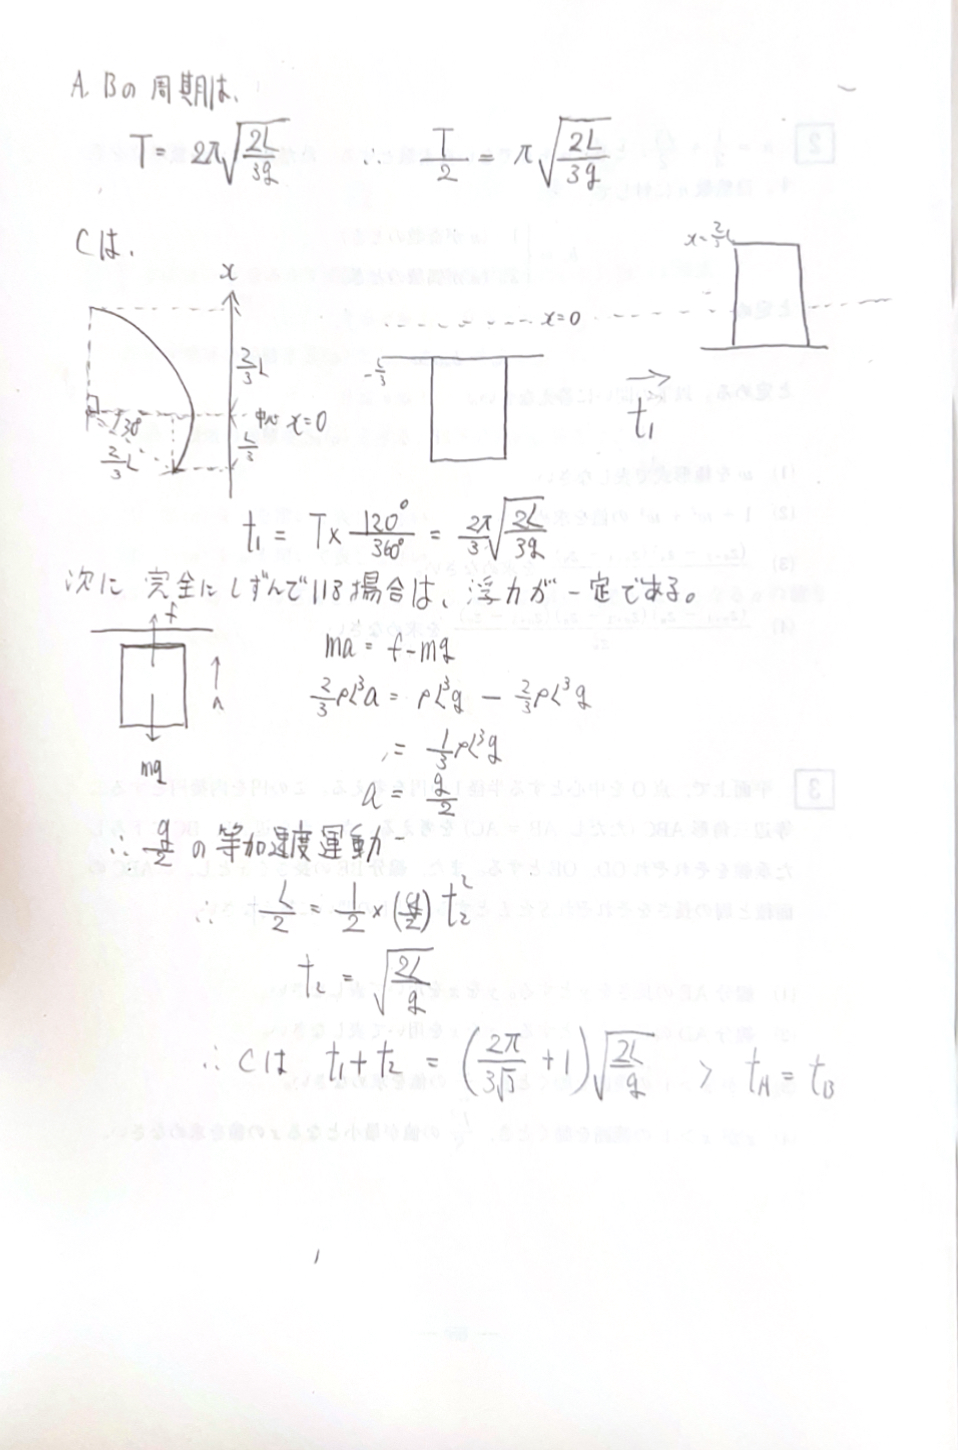 A. Bの周期は、
T = 2π√(2L/3g) ∴ T/2 = π√(2L/3g)
Cは、
x
x=2/3L
x=0
2/3L
-L/3
中心 x=0
30°
L/3
2/3L
t₁
t₁ = T×120°/360° = 2π/3√(2L/3g)
次に 完全にしずんでいる場合は、浮力が一定である。
f
ma = f-mg
2/3ρL³a = ρL³g - 2/3ρL³g
= 1/3ρL³g
mg
a = g/2
∴ g/2 の等加速度運動
∴ L/2 = 1/2×(g/2)t₂²
t₂ = √(2L/g)
∴ Cは t₁+t₂ = (2π/3√3 + 1)√(2L/g) > tA = tB